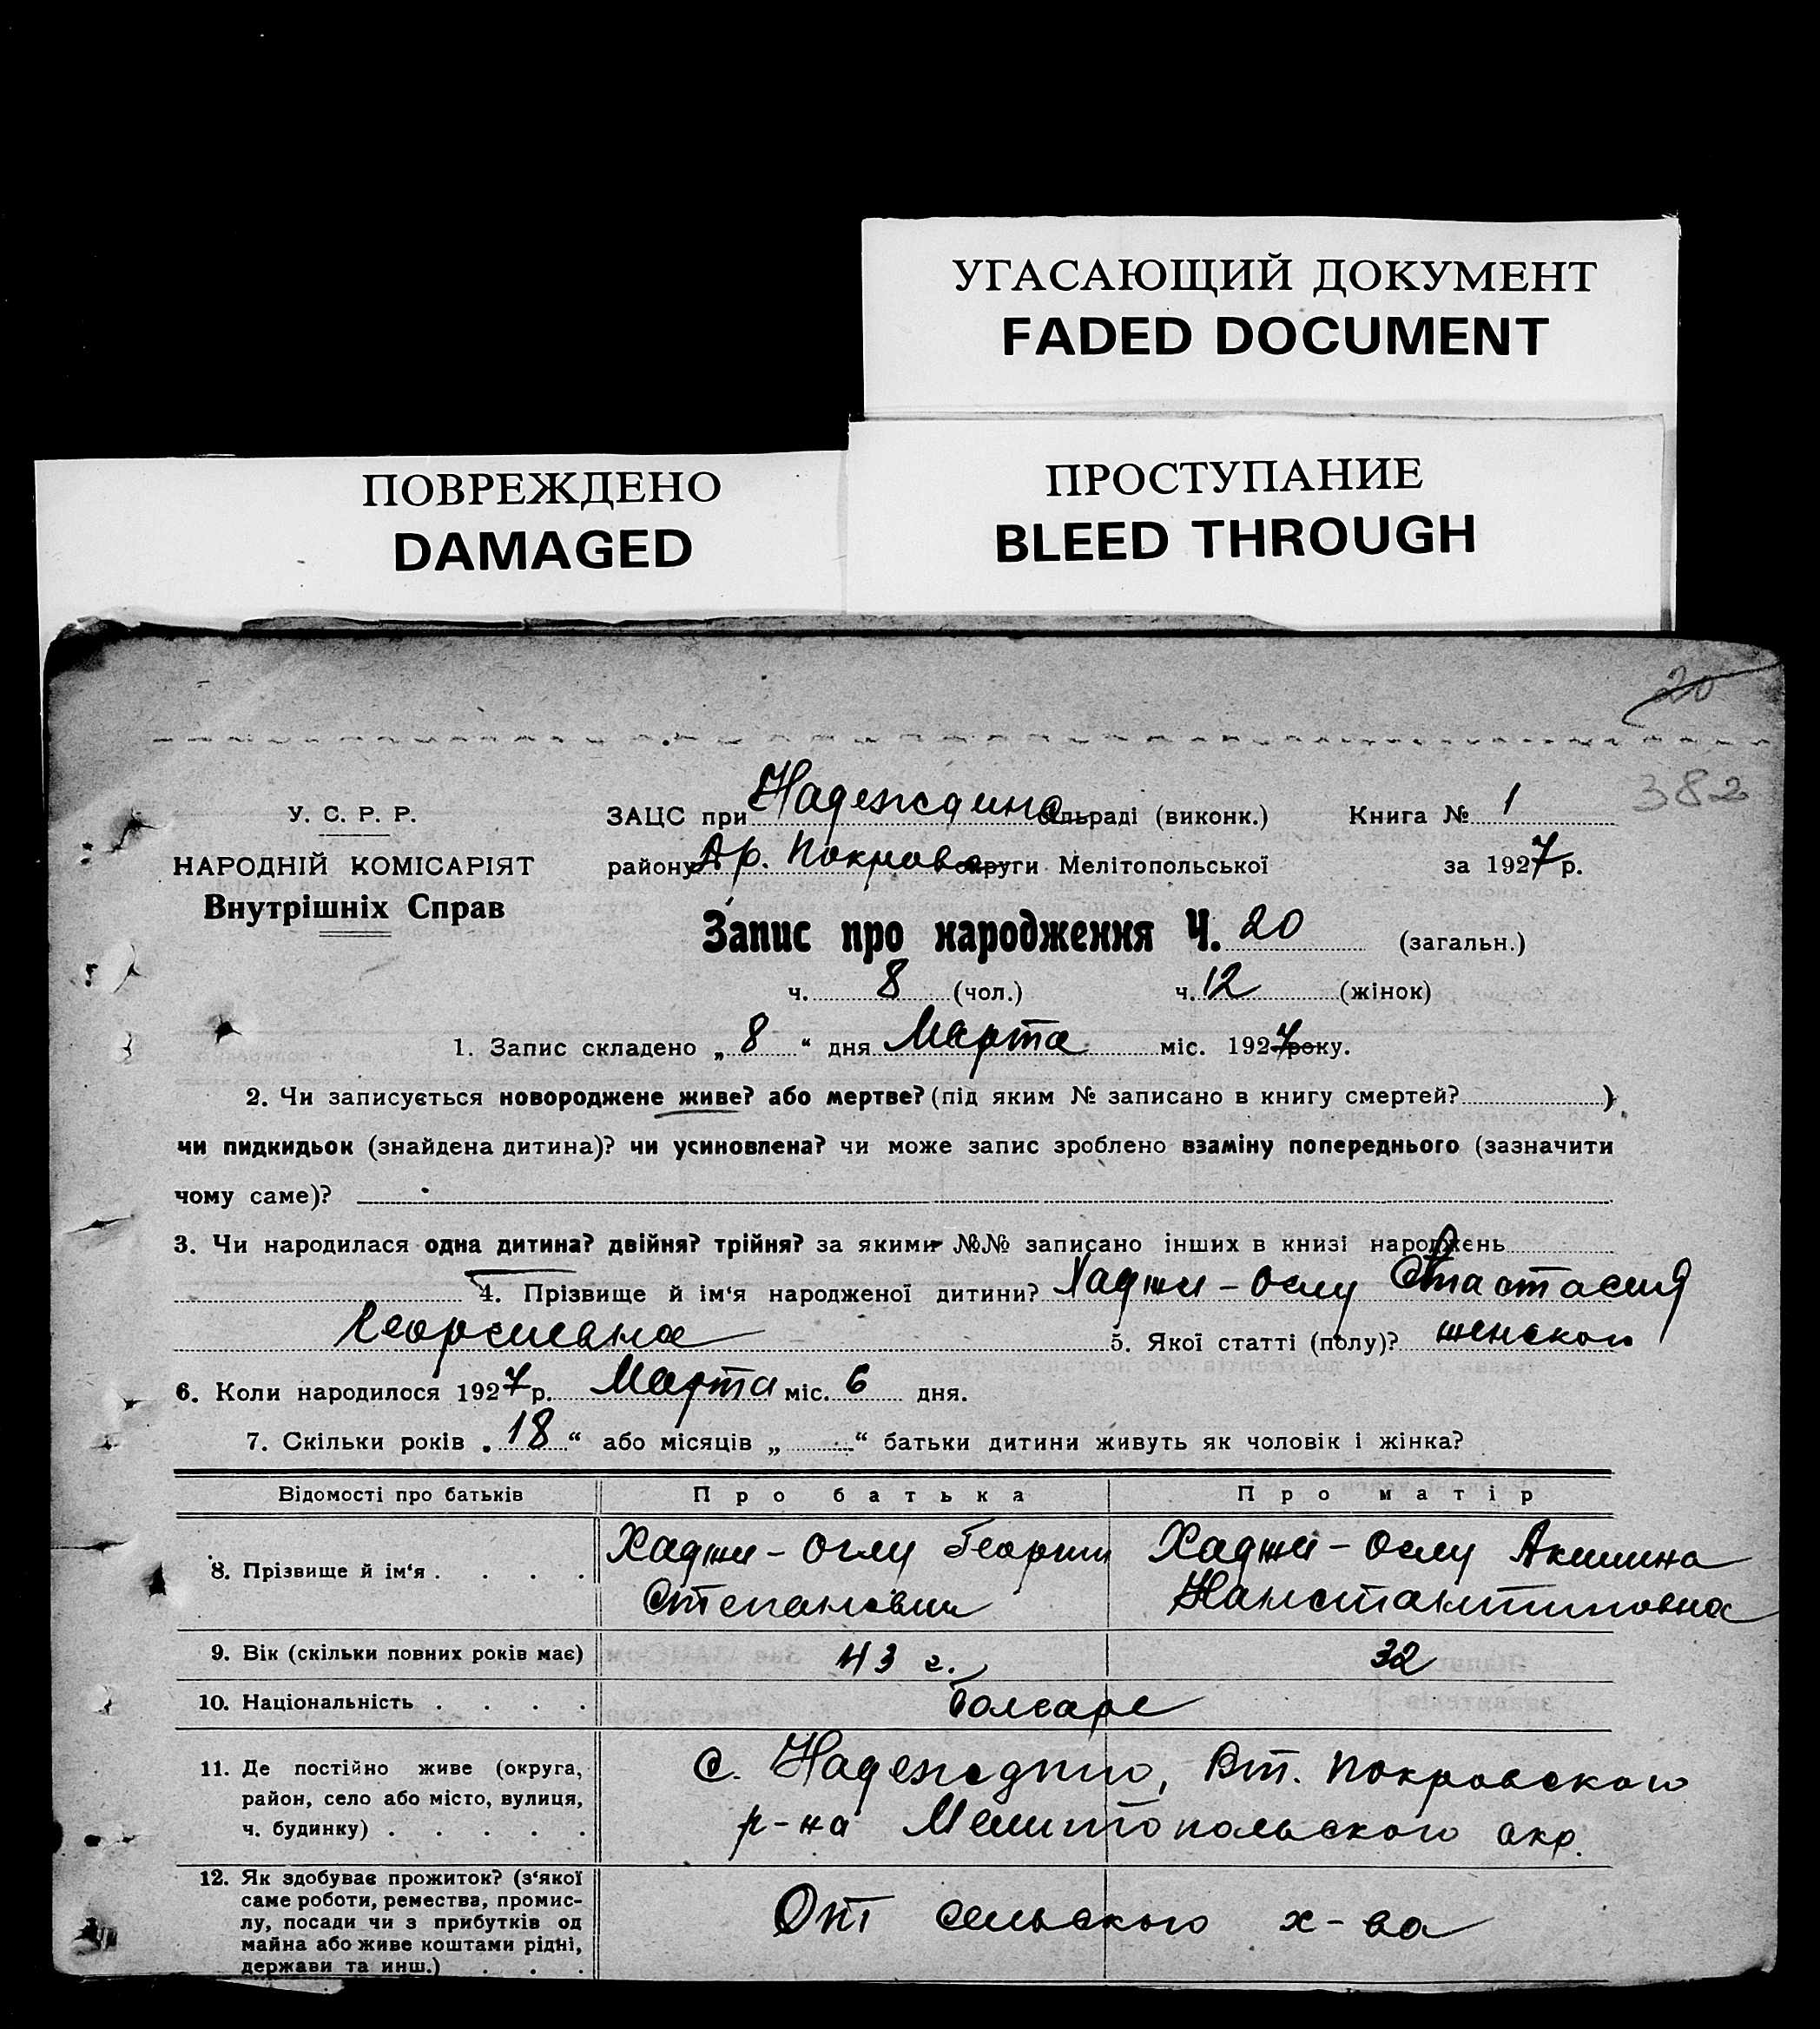 УГАСАЮЩИЙ ДОКУМЕНТ
FADED DOCUMENT
ПОВРЕЖДЕНО
DAMAGED
ПРОСТУПАНИЕ
BLEED THROUGH
20
382
У. С. Р. Р.
НАРОДНІЙ КОМІСАРІЯТ
Внутрішніх Справ
ЗАЦС при Надеждино сільраді (виконк.) Книга № 1
району Ар. Покров округи Мелітопольської за 1927 р.
Запис про народження Ч. 20 (загальн.)
ч. 8 (чол.) ч. 12 (жінок)
1. Запис складено „ 8 “ дня Марта міс. 1927 року.
2. Чи записується новороджене живе? або мертве? (під яким № записано в книгу смертей? )
чи пидкидьок (знайдена дитина)? чи усиновлена? чи може запис зроблено взаміну попереднього (зазначити
чому саме)?
3. Чи народилася одна дитина? двійня? трійня? за якими №№ записано інших в книзі народжень
4. Прізвище й ім‘я народженої дитини? Хаджи - Оглу
Георгиевна 5. Якої статті (полу)? женского
6. Коли народилося 1927 р. Марта міс. 6 дня.
7. Скільки років „ 18 “ або місяців „ “ батьки дитини живуть як чоловік і жінка?
Відомості про батьків Про батька Про матір
8. Прізвище й ім‘я . . . . Хаджи - Оглу Георгий Хаджи - Оглу
Степанович Константиновна
9. Вік (скільки повних років має) 43 г. 32
10. Національність . . . . Болгаре
11. Де постійно живе (округа, район, село або місто, вулиця, ч. будинку) . . . . . с. Надеждино, Вт. Покровского
р-на Мелитопольского окр.
12. Як здобуває прожиток? (з‘якої
саме роботи, ремества, промис-
лу, посади чи з прибутків од
майна або живе коштами рідні,
держави та инш.) . . . От сельского х-ва